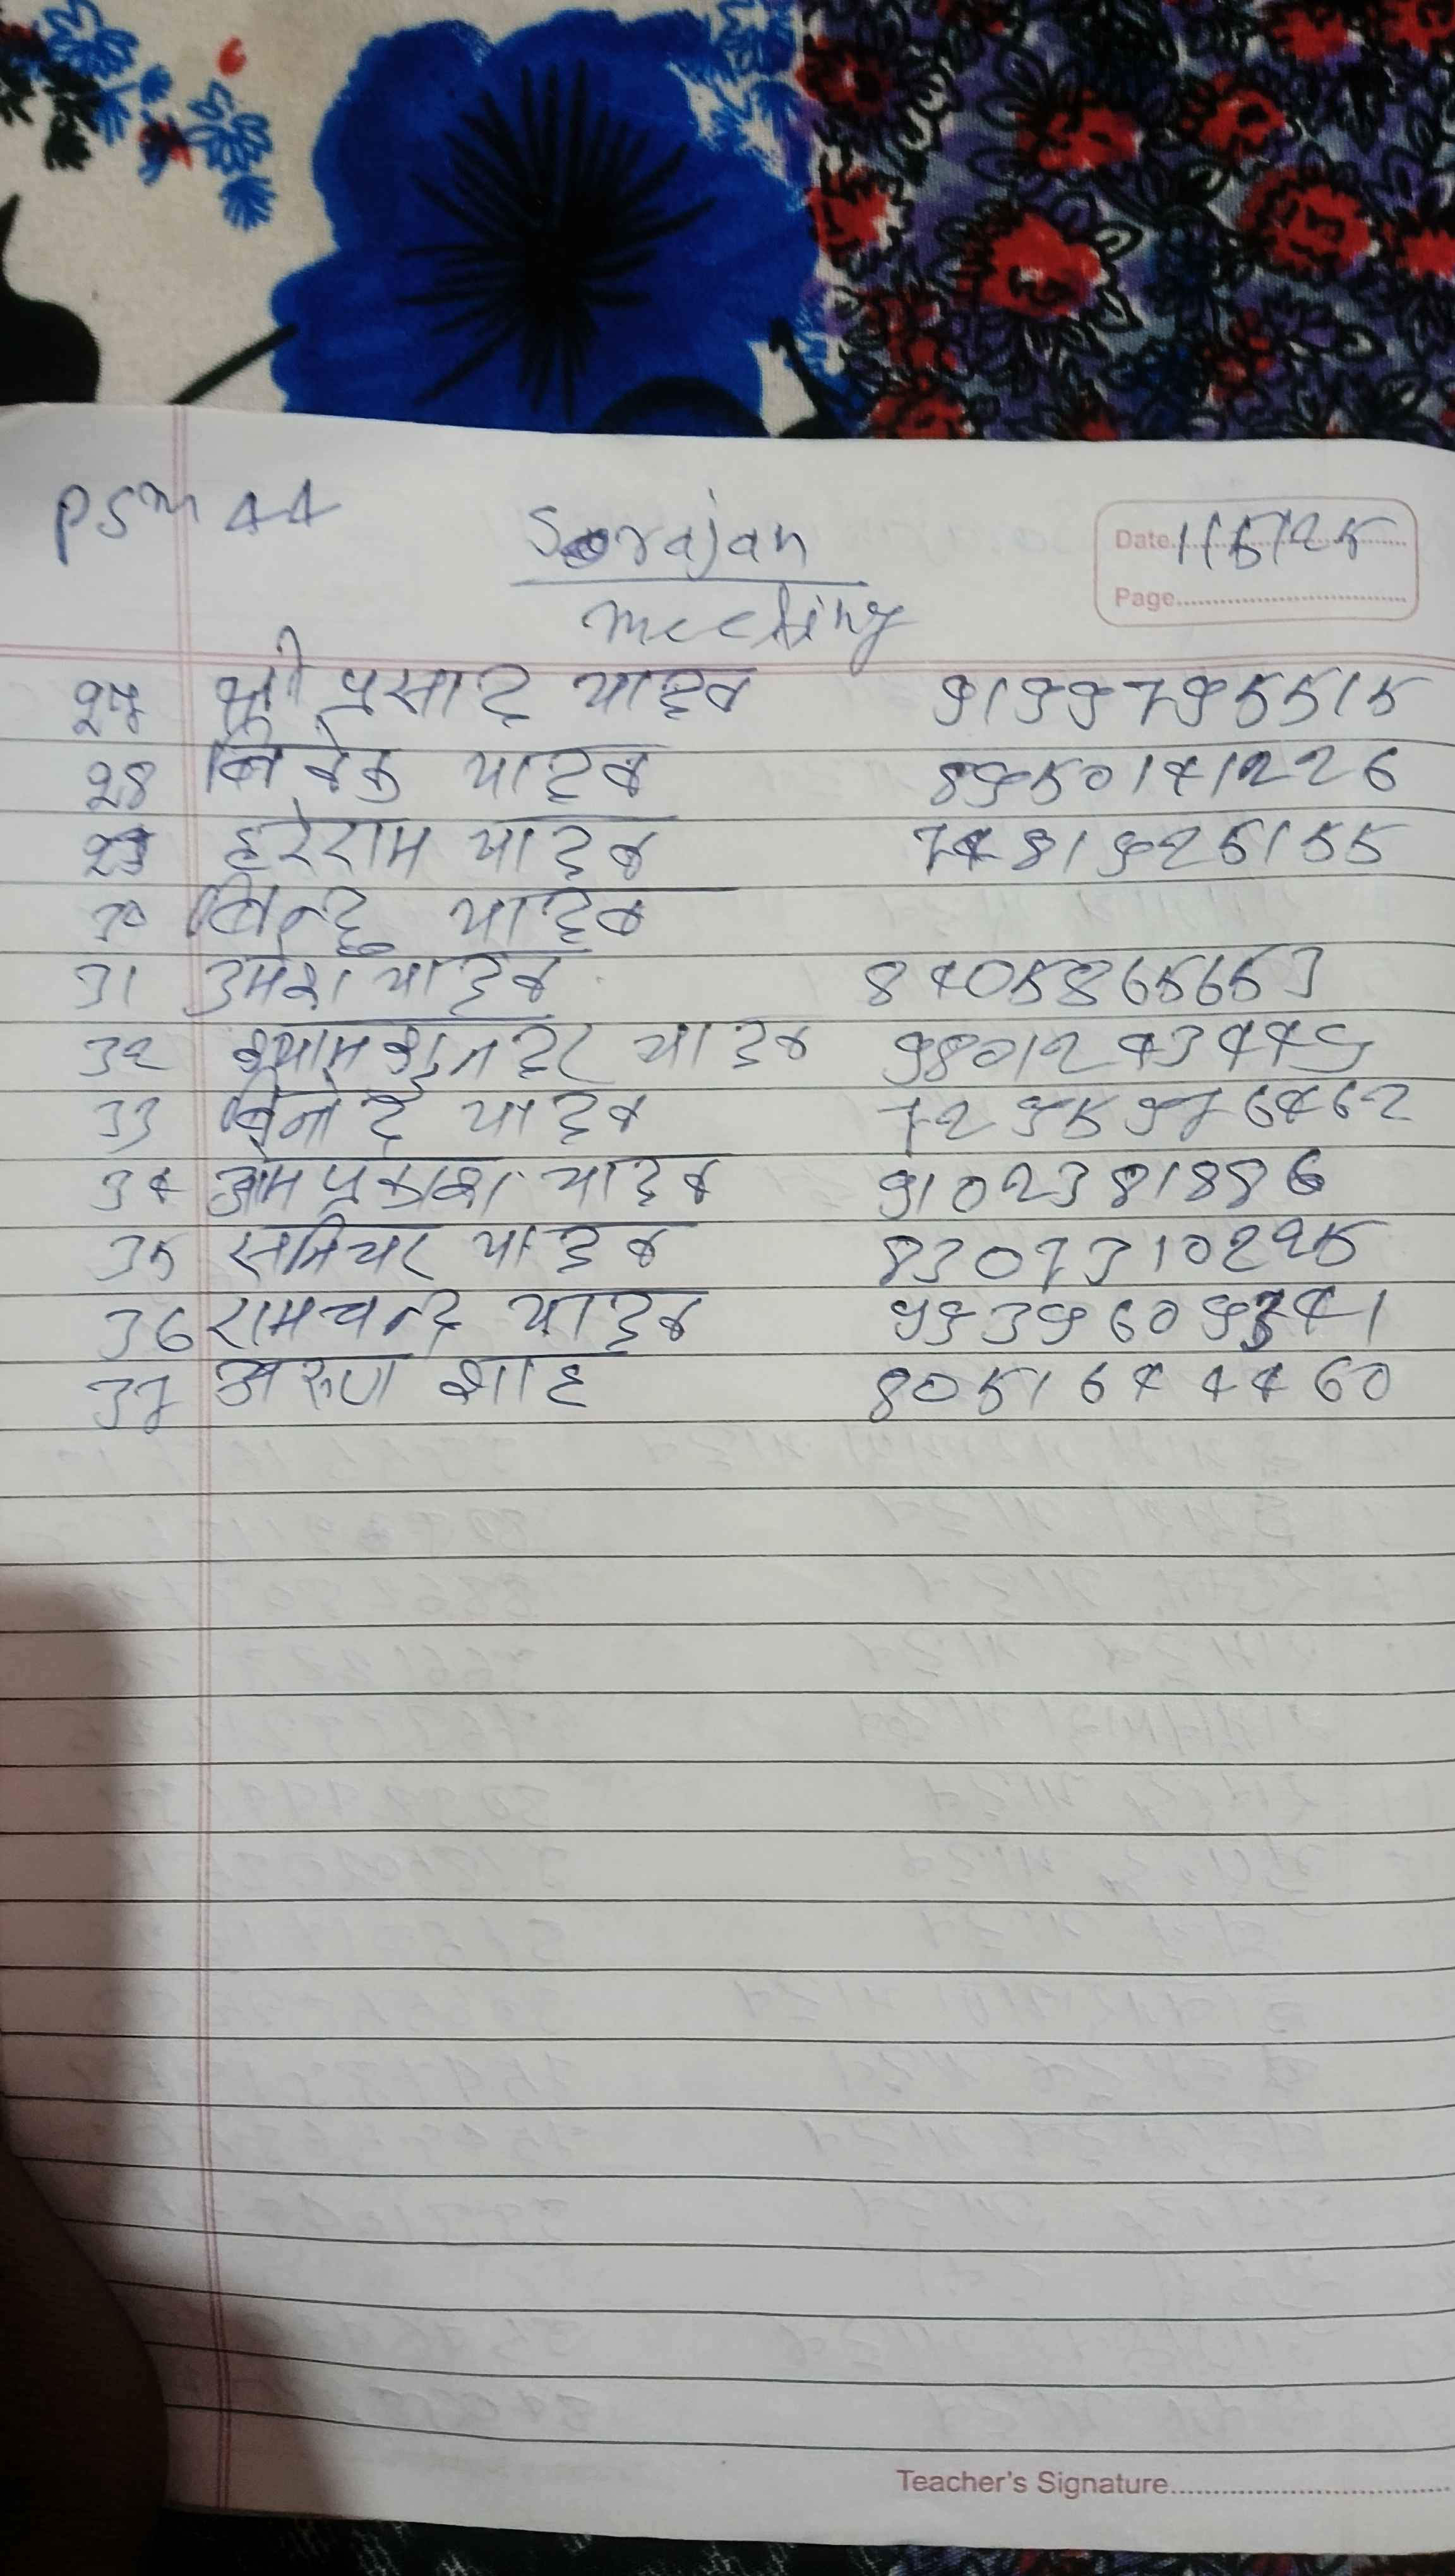 PSM 44
Sorajan
meeting
Date 1/5/25
Page
27 श्री प्रसाद यादव 9199795515
28 बिबेक यादव 8950141226
29 हरेराम यादव 7481925155
30 बिन्दु यादव
31 उमेश यादव 8405865653
32 श्यामशुनदर यादव 9801243449
33 बिनोद यादव 7295976462
34 ओम प्रकाश यादव 9102381886
35 सनिचर यादव 8307310225
36 रामचन्द्र यादव
37 अरुण शाह 8051644460
Teacher's Signature